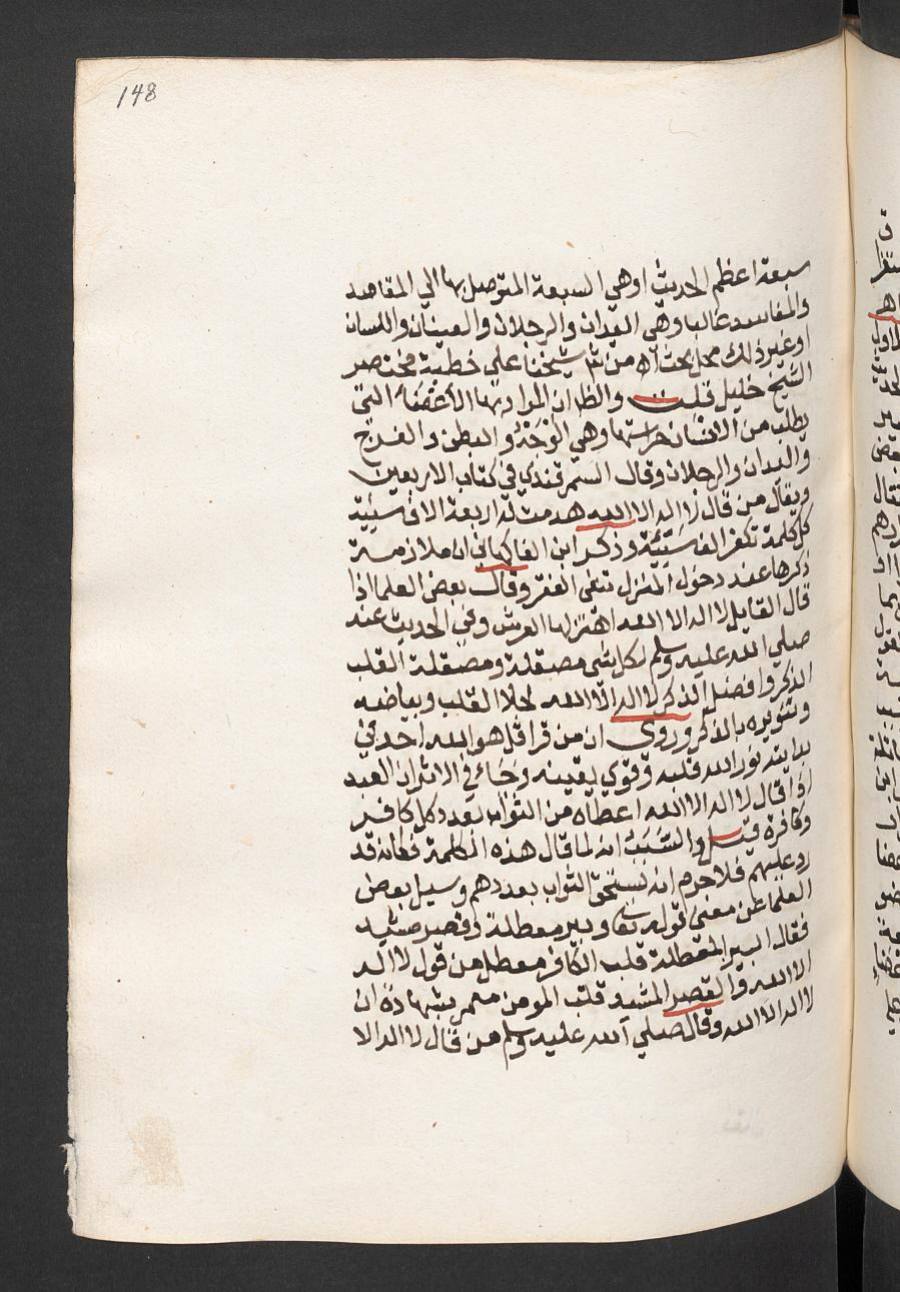 148
سبعة اعظم الحديث او هي السبعة المتوصل بها الي المقاصد
والمفاسد غالبا وهي اليدان والرجلان والعينان واللسان
او غير ذلك محل بحث اه من شيخنا علي خطبة مختصر
الشيخ خليل قلت والظا ان المراد بها الأعضاء التي
يطلب من الانسان حراستها وهي الوجه والبطن والفرج
واليدان والرجلان وقال السمرقندي في كتاب الاربعين
ويقال من قال لا اله الا الله هدمت له اربعة الاف سيئة
كل كلمة تكفر الف سيئة وذكر ابن الفاكهاني ان ملازمة
ذكرها عند دخول المنزل تنفي الفقر وقال بعض العلما اذا
قال القايل لا اله الا الله اهتز لها العرش وفي الحديث عند
صلي الله عليه وسلم لكل شي مصقلة ومصقلة القلب
الذكر وافضل الذكر لا اله الا الله لجلا القلب وبياضه
وتنويره بالذكر وروي ان من قرا قل هو الله احد في
بدايته نور الله قلبه وقوي يقينه وجاء في الاثر ان العبد
اذا قال لا اله الا الله اعطاه من الثواب بعدد كل كافر
وكافرة قيل والسبب انه لما قال هذه الكلمة فكانه قد
رد عليهم فلا جرم انه يستحق الثواب بعددهم وسيل بعض
العلما عن معني قوله تعا وبير معطلة وقصر مشيد
فقال البير المعطلة قلب الكافر معطل من قول لا اله
الا الله والقصر المشيد قلب المومن معمر بشهادة ان
لا اله الا الله وقال صلي الله عليه وسلم من قال لا اله الا